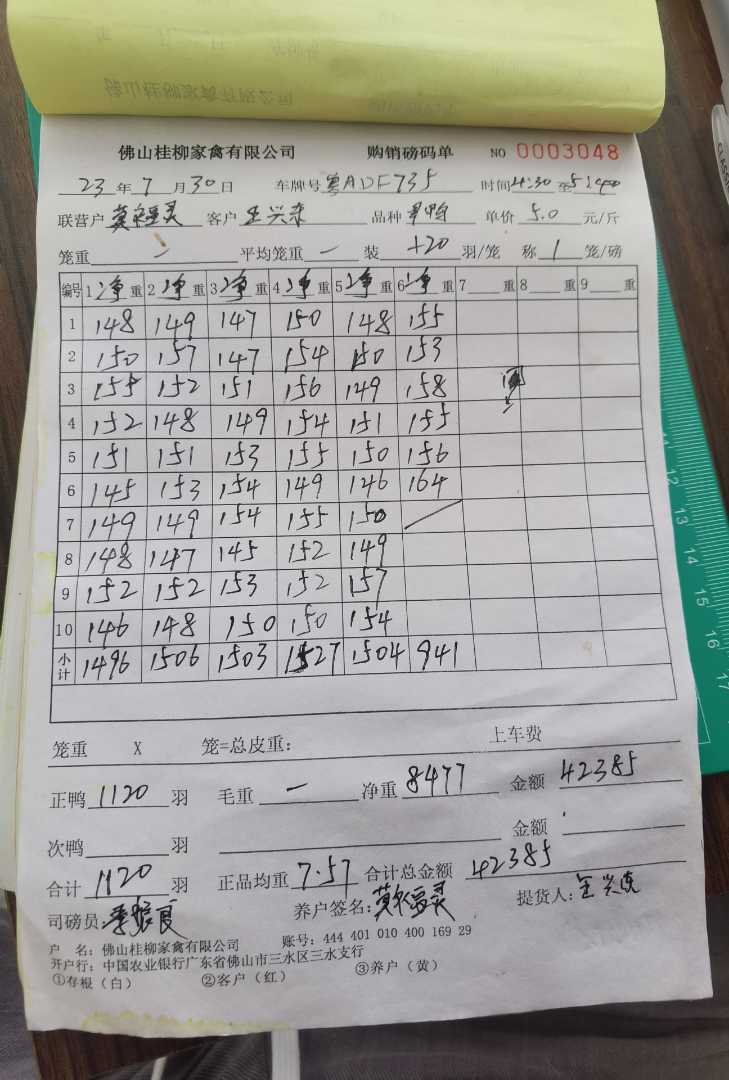 佛山桂柳家禽有限公司 购销磅码单 NO 0003048
23年7月30日 车牌号粤ADF735 时间4:30至5:40
联营户 莫 灵 客户 王兴 品种 鸭 单价 5.0 元/斤
笼重 一 平均笼重 一 装 +20 羽/笼 称 1 笼/磅
编号 1净重 2净重 3净重 4净重 5净重 6净重 7 重 8 重 9 重
1 148 149 147 150 148 155
2 150 157 147 154 150 153
3 155 152 151 156 149 158
4 152 148 149 154 151 155
5 151 151 153 155 150 156
6 145 153 154 149 146 164
7 149 149 154 155 150
8 148 147 145 152 149
9 152 152 153 152 157
10 146 148 150 150 154
小计 1496 1506 1503 1527 1504 941
笼重 X 笼=总皮重: 上车费
正鸭 1120 羽 毛重 一 净重 8477 金额 42385
次鸭 羽 金额
合计 1120 羽 正品均重 7.57 合计总金额 42385
司磅员: 李振良 养户签名: 莫 灵 提货人: 王兴
户 名: 佛山桂柳家禽有限公司 账号: 444 401 010 400 169 29
开户行: 中国农业银行广东省佛山市三水区三水支行
①存根(白) ②客户(红) ③养户(黄)